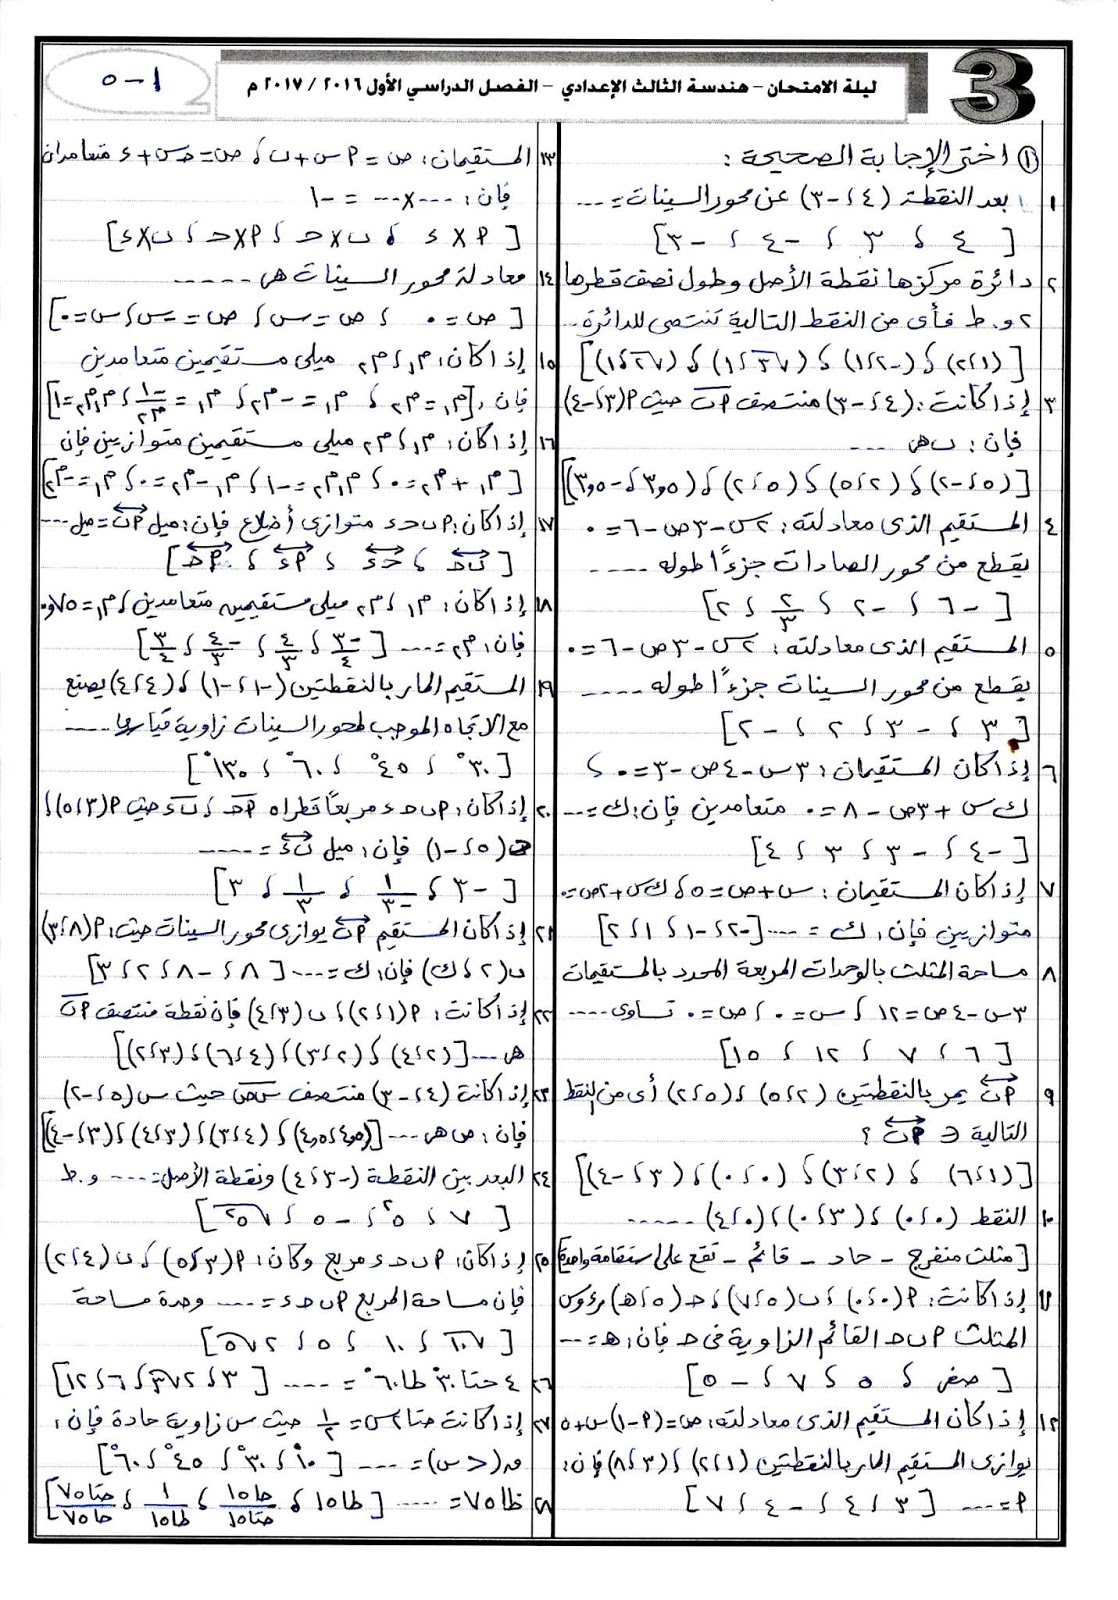 ١ - ٥
ليلة الامتحان - هندسة الثالث الإعدادي - الفصل الدراسي الأول ٢٠١٦ / ٢٠١٧ م
3
① اختر الإجابة الصحيحة :
١ بعد النقطة (٤ ، -٣) عن محور السينات = ...
[ ٤ ، ٣ ، -٤ ، -٣ ]
٢ دائرة مركزها نقطة الأصل وطول نصف قطرها
٢ و.ط فأى من النقط التالية تنتمى للدائرة ...
[(١ ، ٢) ، (-٢ ، ١) ، (√٣ ، ١) ، (√٢ ، ١)]
٣ إذا كانت : (٤ ، -٣) منتصف أب حيث أ(٣ ، -٤)
فإن : ب هى ...
[(٥ ، -٢) ، (٢ ، ٥) ، (٥ ، ٢) ، (٣,٥ ، -٣,٥)]
٤ المستقيم الذى معادلته : ٢س - ٣ص - ٦ = ٠
يقطع من محور الصادات جزءًا طوله .....
[ -٦ ، -٢ ، ٢/٣ ، ٢ ]
٥ المستقيم الذى معادلته : ٢س - ٣ص - ٦ = ٠
يقطع من محور السينات جزءًا طوله .....
[ ٣ ، -٣ ، ٢ ، -٢ ]
٦ إذا كان المستقيمان : ٣س - ٤ص - ٣ = ٠ ،
ك س + ٣ص - ٨ = ٠ متعامدين فإن : ك = ...
[ -٤ ، -٣ ، ٣ ، ٤ ]
٧ إذا كان المستقيمان : س + ص = ٥ ، ك س + ٢ص = ٠
متوازيين فإن : ك = .... [ -٢ ، -١ ، ١ ، ٢ ]
٨ مساحة المثلث بالوحدات المربعة المحدد بالمستقيمات
٣س - ٤ص = ١٢ ، س = ٠ ، ص = ٠ تساوى ....
[ ٦ ، ٧ ، ١٢ ، ١٥ ]
٩ أب يمر بالنقطتين (٢ ، ٥) ، (٥ ، ٢) أى من النقط
التالية ∈ أب ؟
[(١ ، ٦) ، (٢ ، ٣) ، (٠ ، ٠) ، (٣ ، -٤)]
١٠ النقط (٠ ، ٠) ، (٣ ، ٠) ، (٠ ، ٤) .....
[ مثلث منفرج - حاد - قائم - تقع على استقامة واحدة ]
١١ إذا كانت : أ(٠ ، ٠) ، ب(٥ ، ٧) ، جـ(٥ ، هـ) رؤوس
المثلث أ ب جـ القائم الزاوية فى جـ فإن : هـ = ...
[ صفر ، ٥ ، ٧ ، -٥ ]
١٢ إذا كان المستقيم الذى معادلته : ص = (أ - ١) س + ٥
يوازى المستقيم المار بالنقطتين (١ ، ٢) ، (٣ ، ٨) فإن :
أ = .... [ ٣ ، ٤ ، -٤ ، ٧ ]
١٣ المستقيمان : ص = أ س + ب ، ص = جـ س + د متعامدان
فإن : .... × .... = -١
[ أ × د ، ب × جـ ، أ × جـ ، ب × د ]
١٤ معادلة محور السينات هى .....
[ ص = ٠ ، ص = س ، ص = -س ، س = ٠ ]
١٥ إذا كان : م١ ، م٢ ميلى مستقيمين متعامدين
فإن : [ م١ = م٢ ، م١ = -م٢ ، م١ = -١/م٢ ، م١م٢ = ١ ]
١٦ إذا كان : م١ ، م٢ ميلى مستقيمين متوازيين فإن
[ م١ + م٢ = ٠ ، م١م٢ = -١ ، م١ - م٢ = ٠ ، م١ = -م٢ ]
١٧ إذا كان : أ ب جـ د متوازى أضلاع فإن : ميل أب = ميل ....
[ ب جـ ، جـ د ، أ د ، أ جـ ]
١٨ إذا كان : م١ ، م٢ ميلى مستقيمين متعامدين ، م١ = ٠,٧٥
فإن : م٢ = .... [ -٣/٤ ، ٤/٣ ، -٤/٣ ، ٣/٤ ]
١٩ المستقيم المار بالنقطتين (-١ ، -١) ، (٤ ، ٤) يصنع
مع الاتجاه الموجب لمحور السينات زاوية قياسها .....
[ ٣٠° ، ٤٥° ، ٦٠° ، ١٣٠° ]
٢٠ إذا كان : أ ب جـ د مربعًا قطراه أجـ ، ب د حيث أ(٣ ، ٥) ،
جـ(٥ ، -١) فإن : ميل ب د = .....
[ -٣ ، ١/-٣ ، ١/٣ ، ٣ ]
٢١ إذا كان المستقيم أب يوازى محور السينات حيث : أ(٨ ، ٣)
ب(٢ ، ك) فإن : ك = .... [ ٨ ، -٨ ، ٢ ، ٣ ]
٢٢ إذا كانت : أ(١ ، ٢) ، ب(٣ ، ٤) فإن نقطة منتصف أب
هى .... [(٢ ، ٤) ، (٢ ، ٣) ، (٤ ، ٦) ، (٣ ، ٢)]
٢٣ إذا كانت (٤ ، -٣) منتصف س ص حيث س(٥ ، -٢)
فإن : ص هى .... [(٤,٥ ، ٤,٥) ، (٤ ، ٣) ، (٣ ، ٤) ، (٣ ، -٤)]
٢٤ البعد بين النقطة (-٣ ، ٤) ونقطة الأصل = .... و.ط
[ ٧ ، ٥ ، -٥ ، √٢٥ ]
٢٥ إذا كان : أ ب جـ د مربع وكان : أ(٣ ، ٥) ، ب(٤ ، ٢)
فإن مساحة المربع أ ب جـ د = .... وحدة مساحة
[ √١٠ ، ١٠ ، ٥ ، ٢√٥ ]
٢٦ ٤ حتا ٣٠° طا ٦٠° = .... [ ٣ ، ٢√٣ ، ٦ ، ١٢ ]
٢٧ إذا كانت حتا ٢س = ١/٢ حيث س زاوية حادة فإن :
ق(< س) = .... [ ١٠° ، ٣٠° ، ٤٥° ، ٦٠° ]
٢٨ ظا ٧٥ = .... [ طا ١٥ ، حا ١٥/حتا ١٥ ، ١/طا ١٥ ، حتا ٧٥/حا ٧٥ ]